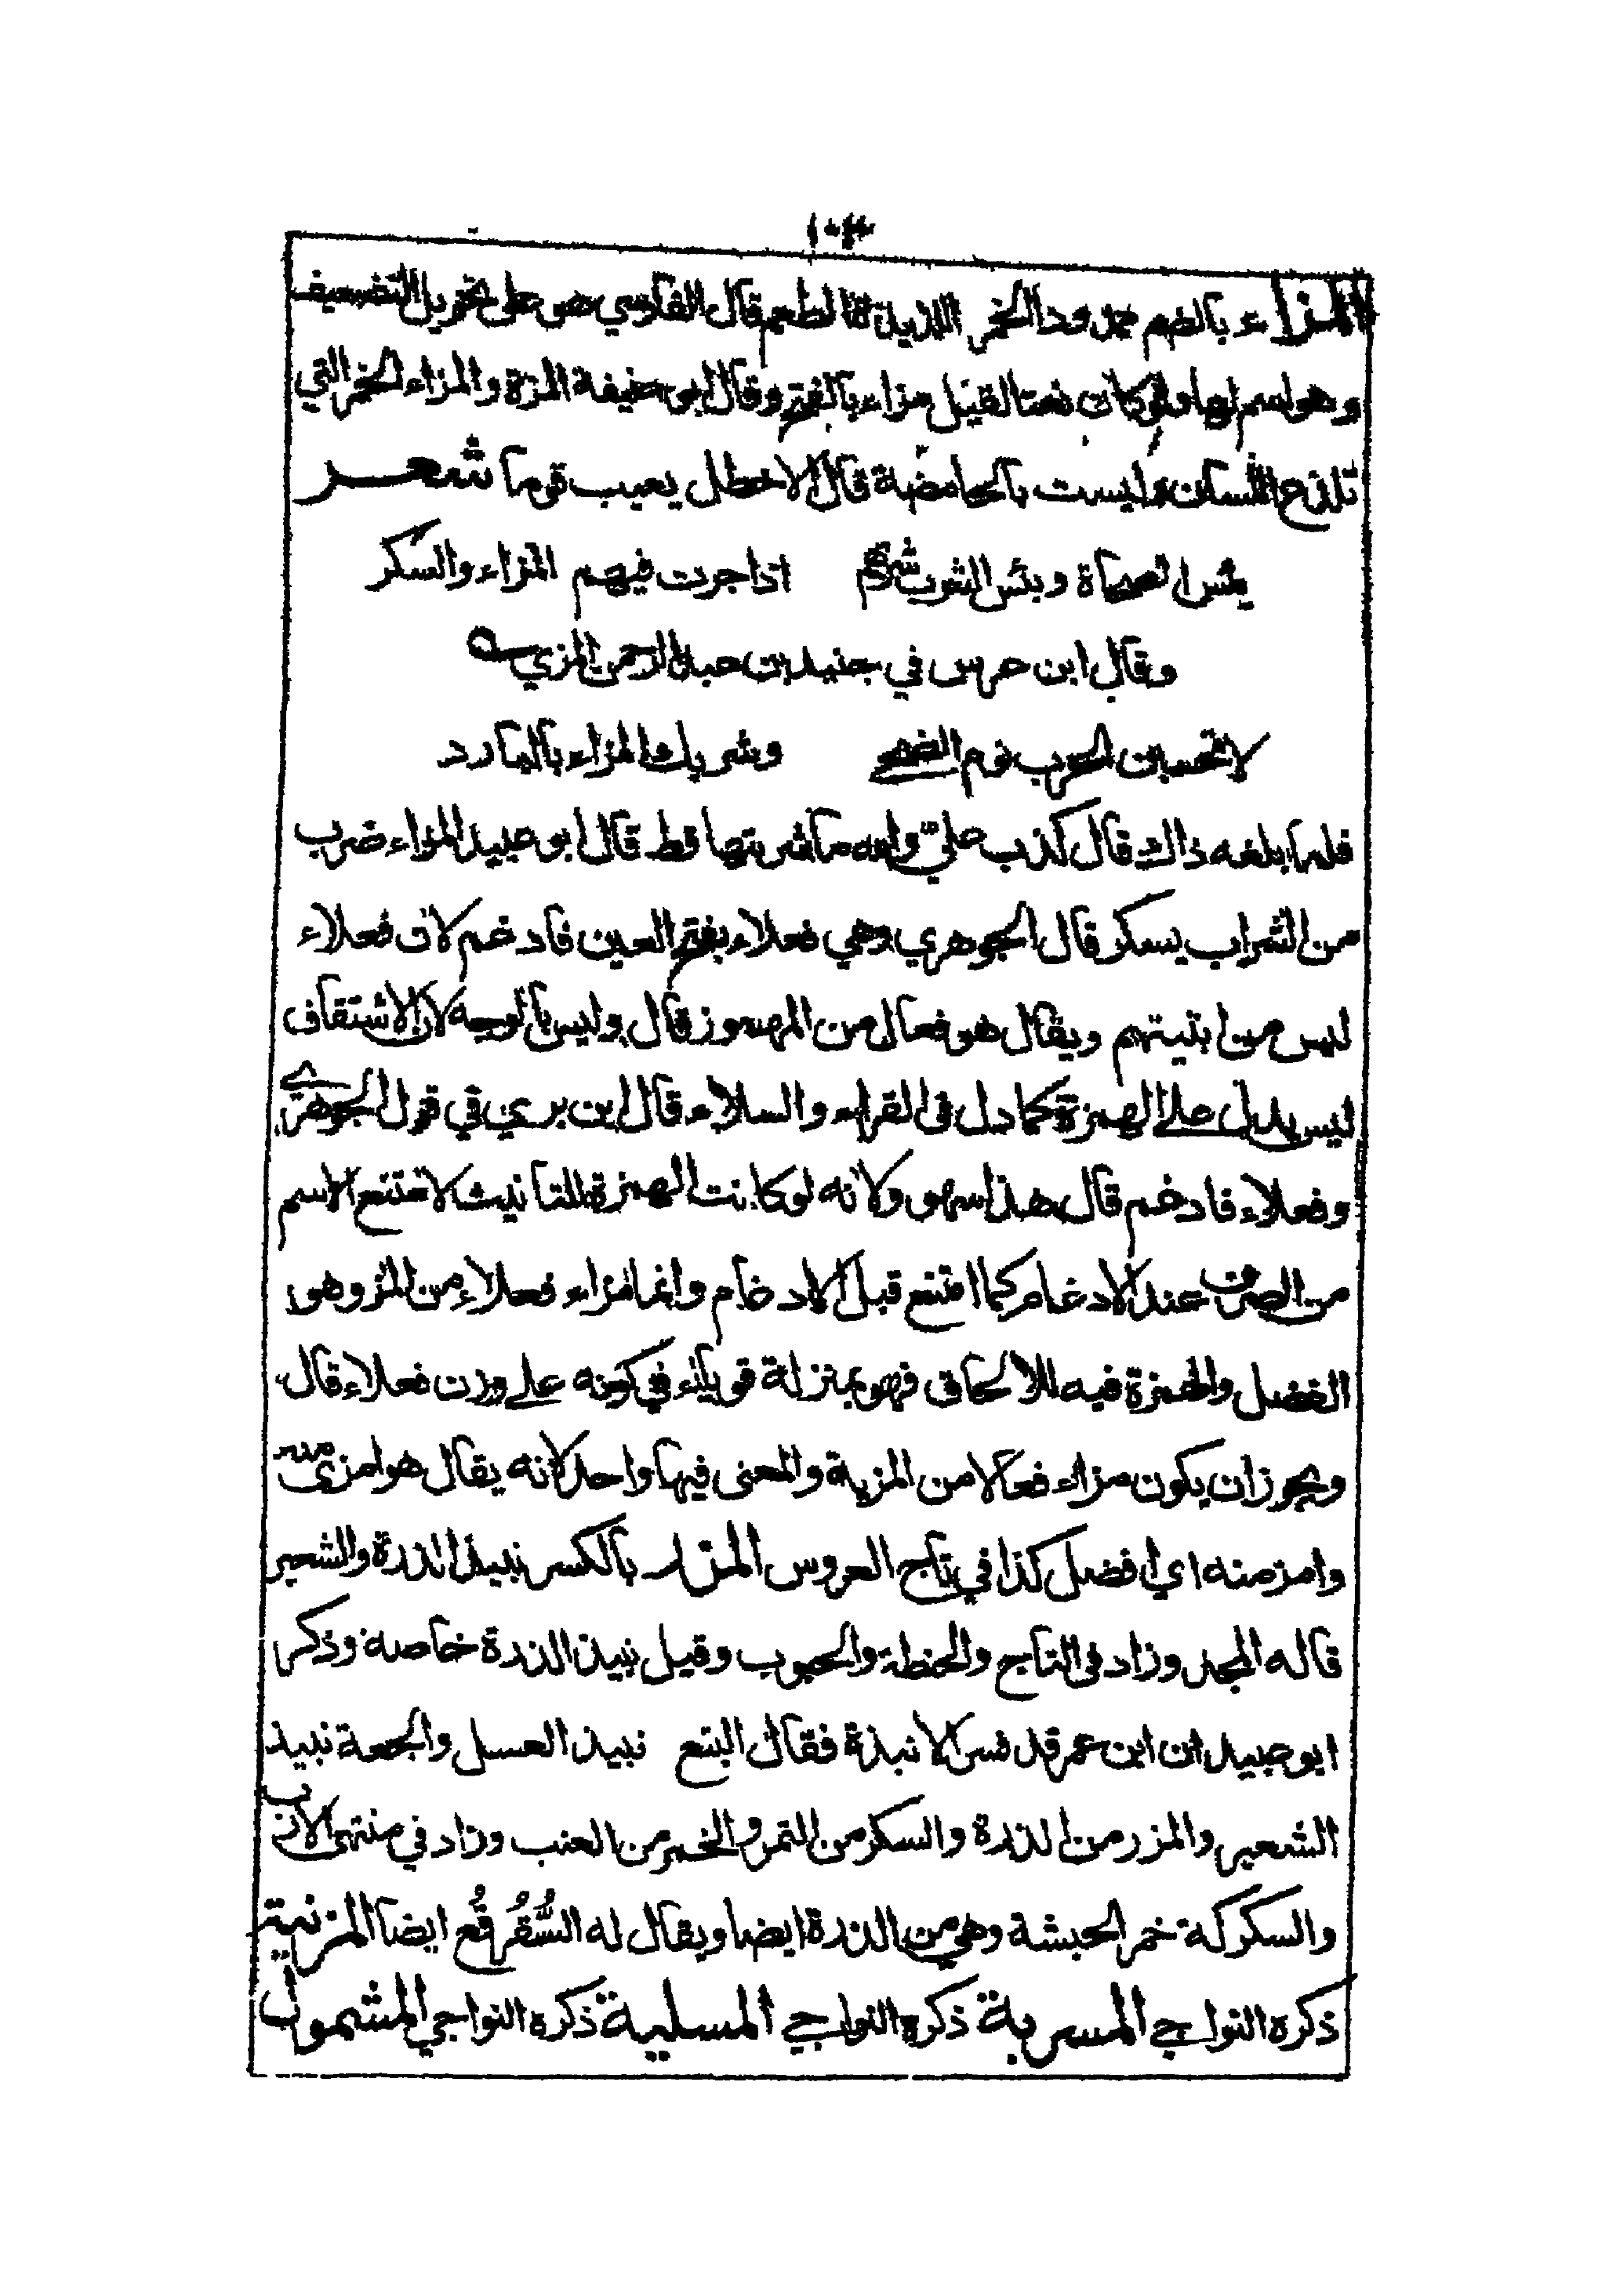 ١٠٣
المزاء بالضم ممدودا الخمر اللذيذة الطعم قال الفارسي هو على تحويل التضعيف
وهو اسم لها ولو كان نعتا لقيل مزاء بالفتح وقال ابو حنيفة المزة والمزاء الخمر التي
تلذع اللسان وليست بالحامضة قال الاخطل يعيب قوما شعر
بئس الصحاة وبئس الشرب شربهم اذا جرت فيهم المزاء والسكر
وقال ابن عرس في جنيد بن عبد الرحمن المزي
لا تحسبن الحرب نوم الضحى وشربك المزاء بالبارد
فلما بلغه ذلك قال كذب علي والله ما شربتها قط قال ابو عبيد المزاء ضرب
من الشراب يسكر قال الجوهري وهي فعلاء بفتح العين فادغم لان فعلاء
ليس من ابنيتهم ويقال هو فعال من المهموز قال وليس بالوجه لان الاشتقاق
ليس يدل على الهمزة كما دل في القراء والسلاء قال ابن بري في قول الجوهري
وفعلاء فادغم قال هذا سهو ولانه لو كانت الهمزة للتانيث لامتنع الاسم
من الصرف عند الادغام كما امتنع قبل الادغام وانما مزاء فعلاء من المز وهو
الفضل والهمزة فيه للالحاق فهو بمنزلة قوباء في كونه على وزن فعلاء قال
ويجوز ان يكون مزاء فعالا من المزية والمعنى فيها واحد لانه يقال هو امزى منه
وامز منه اي افضل كذا في تاج العروس المزر بالكسر نبيذ الذرة والشعير
قاله المجد وزاد في التاج والحنطة والحبوب وقيل نبيذ الذرة خاصة وذكر
ابو عبيد ان ابن عمر قد فسر الانبذة فقال البتع نبيذ العسل والجعة نبيذ
الشعير والمزر من الذرة والسكر من التمر والخمر من العنب وزاد في منتهى الارب
والسكركة خمر الحبشة وهي من الذرة ايضا ويقال له السُّقُرقُع ايضا المزنية
ذكره النواجي المسربة ذكره النواجي المسلية ذكره النواجي المشمول